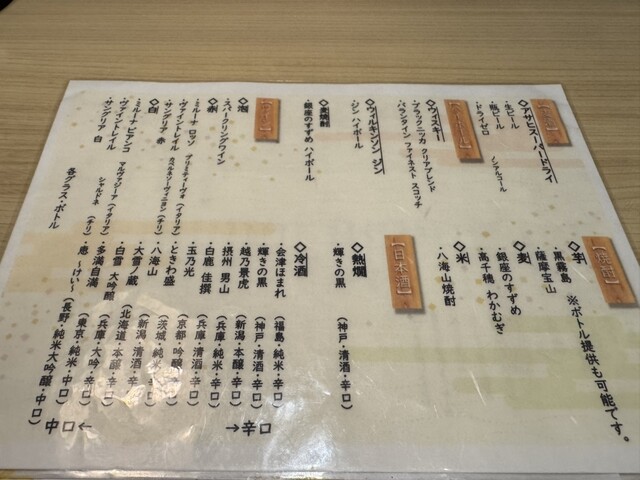 【ビール】
◇アサヒスーパードライ
・生ビール
・瓶ビール
・ドライゼロ ノンアルコール
【ハイボール】
◇ウィスキー
・ブラックニッカ クリアブレンド
・バランタイン ファイネスト スコッチ
◇ウィルキンソン ジン
・ジン ハイボール
◇麦焼酎
・銀座のすずめ ハイボール
【ワイン】
◇泡
・スパークリングワイン
◇赤
・ミルーナ ロッソ プリミティーヴォ(イタリア)
・ヴァイントレイル カベルネソーヴィニヨン(チリ)
・サングリア 赤
◇白
・ミルーナ ビアンコ マルヴァジーア(イタリア)
・ヴァイントレイル シャルドネ(チリ)
・サングリア 白
各グラス・ボトル
【焼酎】
※ボトル提供も可能です。
◇芋
・黒霧島
・薩摩宝山
◇麦
・銀座のすずめ
・高千穂 わかむぎ
◇米
・八海山焼酎
【日本酒】
◇熱燗
・輝きの黒 (神戸・清酒・辛口)
◇冷酒
・会津ほまれ (福島・純米・辛口)
・輝きの黒 (神戸・清酒・辛口)
・越乃景虎 (新潟・本醸・辛口)
・摂州 男山 (兵庫・純米・辛口)
・白鹿 佳撰 (兵庫・清酒・辛口)
・玉乃光 (京都・吟醸・辛口)
・ときわ盛 (茨城・純米・辛口)
・八海山 (新潟・清酒・辛口)
・大雪ノ蔵 (北海道・本醸・辛口)
・白雪 大吟醸 (兵庫・大吟・辛口)
・多満自満 (東京・純米・中口)
・慶 ~けい~ (長野・純米大吟醸・中口)
→辛口
中口←